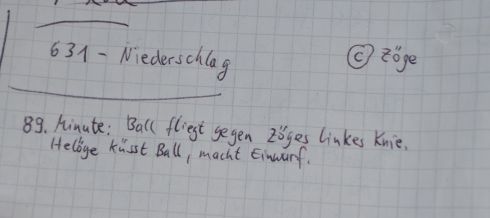 631 - Niederschlag
© Zöge
89. Minute: Ball fliegt gegen Zöges linkes Knie.
Helöge küsst Ball, macht Einwurf.